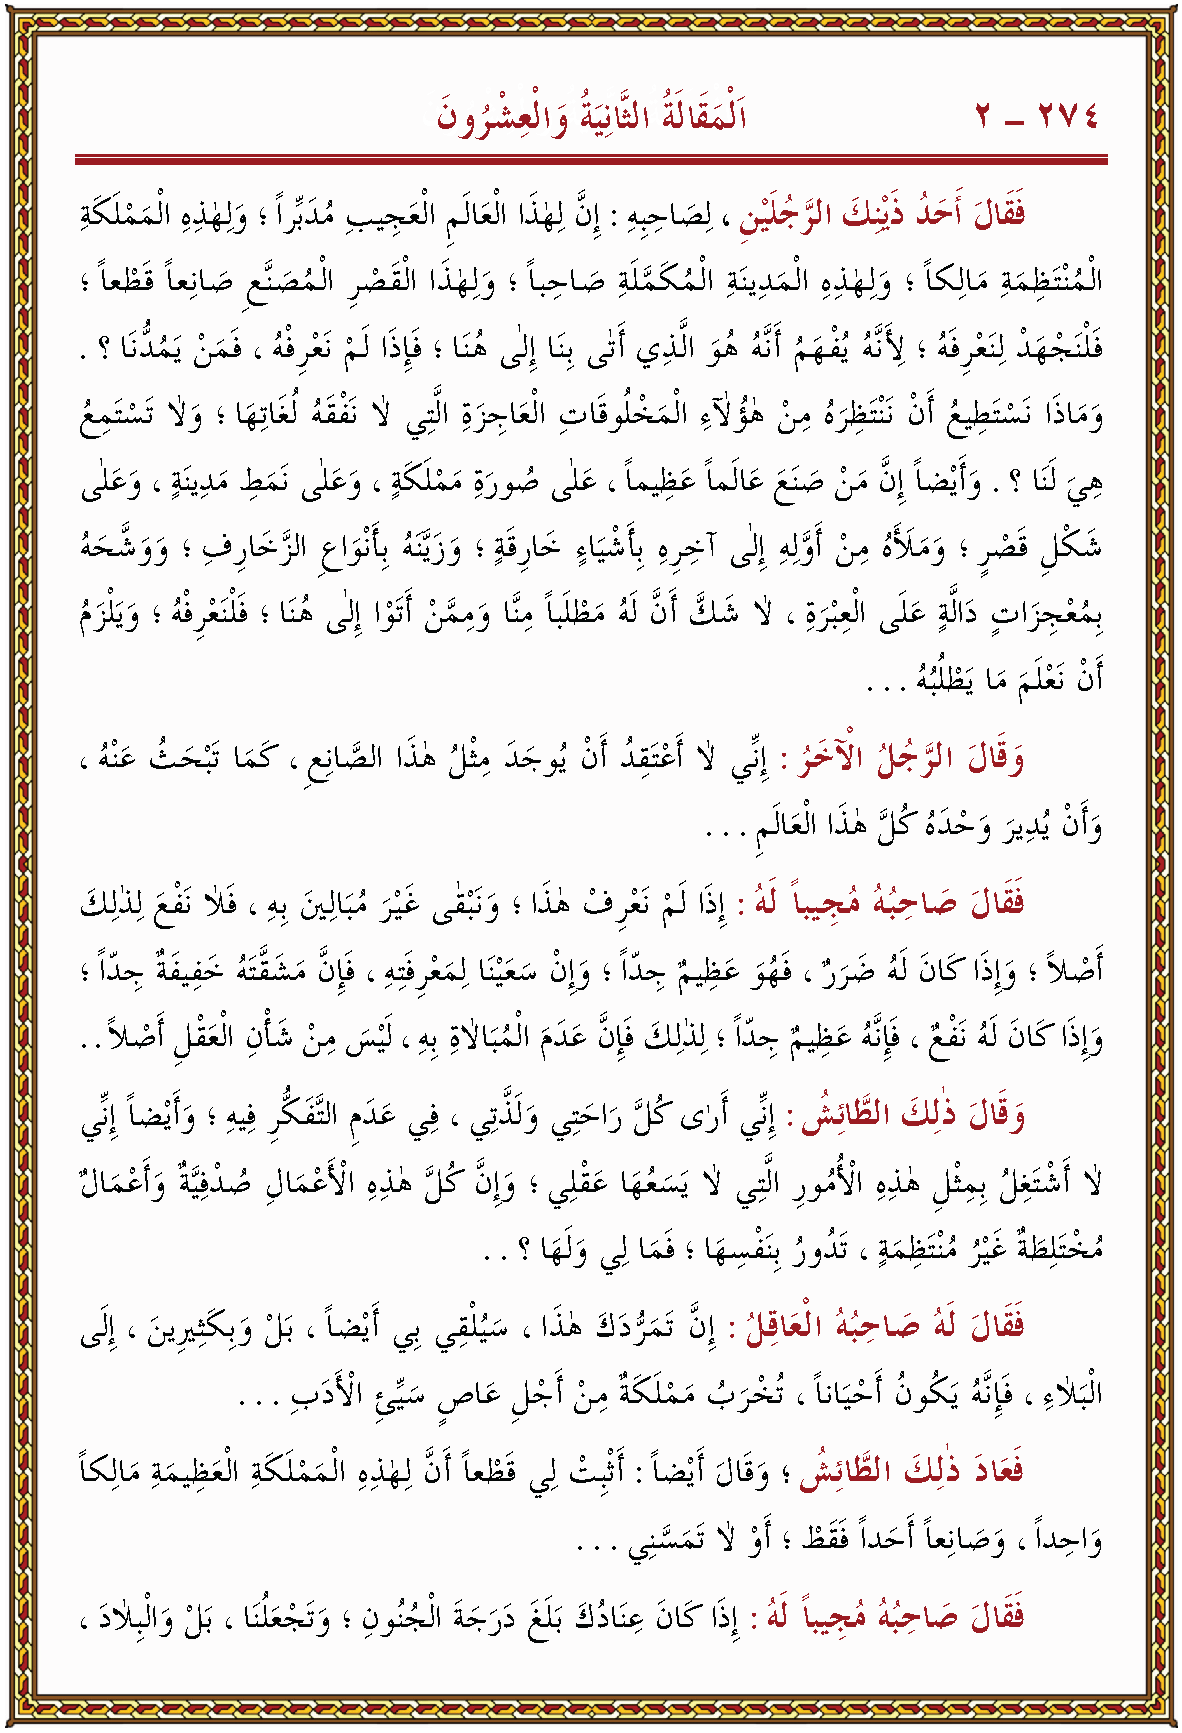 ٢٧٤ – ٢ اَلْمَقَالَةُ الثَّانِيَةُ وَالْعِشْرُونَ
فَقَالَ أَحَدُ ذَيْنِكَ الرَّجُلَيْنِ ، لِصَاحِبِهِ : إِنَّ لِهٰذَا الْعَالَمِ الْعَجِيبِ مُدَبِّراً ؛ وَلِهٰذِهِ الْمَمْلَكَةِ
الْمُنْتَظِمَةِ مَالِكاً ؛ وَلِهٰذِهِ الْمَدِينَةِ الْمُكَمَّلَةِ صَاحِباً ؛ وَلِهٰذَا الْقَصْرِ الْمُصَنَّعِ صَانِعاً قَطْعاً ؛
فَلْنَجْهَدْ لِنَعْرِفَهُ ؛ لِأَنَّهُ يُفْهَمُ أَنَّهُ هُوَ الَّذِي أَتٰى بِنَا إِلٰى هُنَا ؛ فَإِذَا لَمْ نَعْرِفْهُ ، فَمَنْ يُمِدُّنَا ؟ .
وَمَاذَا نَسْتَطِيعُ أَنْ نَنْتَظِرَهُ مِنْ هٰؤُلٰآءِ الْمَخْلُوقَاتِ الْعَاجِزَةِ الَّتِي لَا نَفْقَهُ لُغَاتِهَا ؛ وَلَا تَسْتَمِعُ
هِيَ لَنَا ؟ . وَأَيْضاً إِنَّ مَنْ صَنَعَ عَالَماً عَظِيماً ، عَلٰى صُورَةِ مَمْلَكَةٍ ، وَعَلٰى نَمَطِ مَدِينَةٍ ، وَعَلٰى
شَكْلِ قَصْرٍ ؛ وَمَلَأَهُ مِنْ أَوَّلِهِ إِلٰى آخِرِهِ بِأَشْيَاءٍ خَارِقَةٍ ؛ وَزَيَّنَهُ بِأَنْوَاعِ الزَّخَارِفِ ؛ وَوَشَّحَهُ
بِمُعْجِزَاتٍ دَالَّةٍ عَلَى الْعِبْرَةِ ، لَا شَكَّ أَنَّ لَهُ مَطْلَباً مِنَّا وَمِمَّنْ أَتَوْا إِلٰى هُنَا ؛ فَلْنَعْرِفْهُ ؛ وَيَلْزَمُ
أَنْ نَعْلَمَ مَا يَطْلُبُهُ . . .
وَقَالَ الرَّجُلُ الْآخَرُ : إِنِّي لَا أَعْتَقِدُ أَنْ يُوجَدَ مِثْلُ هٰذَا الصَّانِعِ ، كَمَا تَبْحَثُ عَنْهُ ،
وَأَنْ يُدِيرَ وَحْدَهُ كُلَّ هٰذَا الْعَالَمِ . . .
فَقَالَ صَاحِبُهُ مُجِيباً لَهُ : إِذَا لَمْ نَعْرِفْ هٰذَا ؛ وَنَبْقٰى غَيْرَ مُبَالِينَ بِهِ ، فَلَا نَفْعَ لِذٰلِكَ
أَصْلاً ؛ وَإِذَا كَانَ لَهُ ضَرَرٌ ، فَهُوَ عَظِيمٌ جِدّاً ؛ وَإِنْ سَعَيْنَا لِمَعْرِفَتِهِ ، فَإِنَّ مَشَقَّتَهُ خَفِيفَةٌ جِدّاً ؛
وَإِذَا كَانَ لَهُ نَفْعٌ ، فَإِنَّهُ عَظِيمٌ جِدّاً ؛ لِذٰلِكَ فَإِنَّ عَدَمَ الْمُبَالَاةِ بِهِ ، لَيْسَ مِنْ شَأْنِ الْعَقْلِ أَصْلاً . .
وَقَالَ ذٰلِكَ الطَّائِشُ : إِنِّي أَرٰى كُلَّ رَاحَتِي وَلَذَّتِي ، فِي عَدَمِ التَّفَكُّرِ فِيهِ ؛ وَأَيْضاً إِنِّي
لَا أَشْتَغِلُ بِمِثْلِ هٰذِهِ الْأُمُورِ الَّتِي لَا يَسَعُهَا عَقْلِي ؛ وَإِنَّ كُلَّ هٰذِهِ الْأَعْمَالِ صُدْفِيَّةٌ وَأَعْمَالٌ
مُخْتَلِطَةٌ غَيْرُ مُنْتَظِمَةٍ ، تَدُورُ بِنَفْسِهَا ؛ فَمَا لِي وَلَهَا ؟ . .
فَقَالَ لَهُ صَاحِبُهُ الْعَاقِلُ : إِنَّ تَمَرُّدَكَ هٰذَا ، سَيُلْقِي بِي أَيْضاً ، بَلْ وَبِكَثِيرِينَ ، إِلَى
الْبَلَاءِ ، فَإِنَّهُ يَكُونُ أَحْيَاناً ، تُخْرَبُ مَمْلَكَةٌ مِنْ أَجْلِ عَاصٍ سَيِّئِ الْأَدَبِ . . .
فَعَادَ ذٰلِكَ الطَّائِشُ ؛ وَقَالَ أَيْضاً : أَثْبِتْ لِي قَطْعاً أَنَّ لِهٰذِهِ الْمَمْلَكَةِ الْعَظِيمَةِ مَالِكاً
وَاحِداً ، وَصَانِعاً أَحَداً فَقَطْ ؛ أَوْ لَا تَمَسَّنِي . . .
فَقَالَ صَاحِبُهُ مُجِيباً لَهُ : إِذَا كَانَ عِنَادُكَ بَلَغَ دَرَجَةَ الْجُنُونِ ؛ وَتَجْعَلُنَا ، بَلْ وَالْبِلَادَ ،